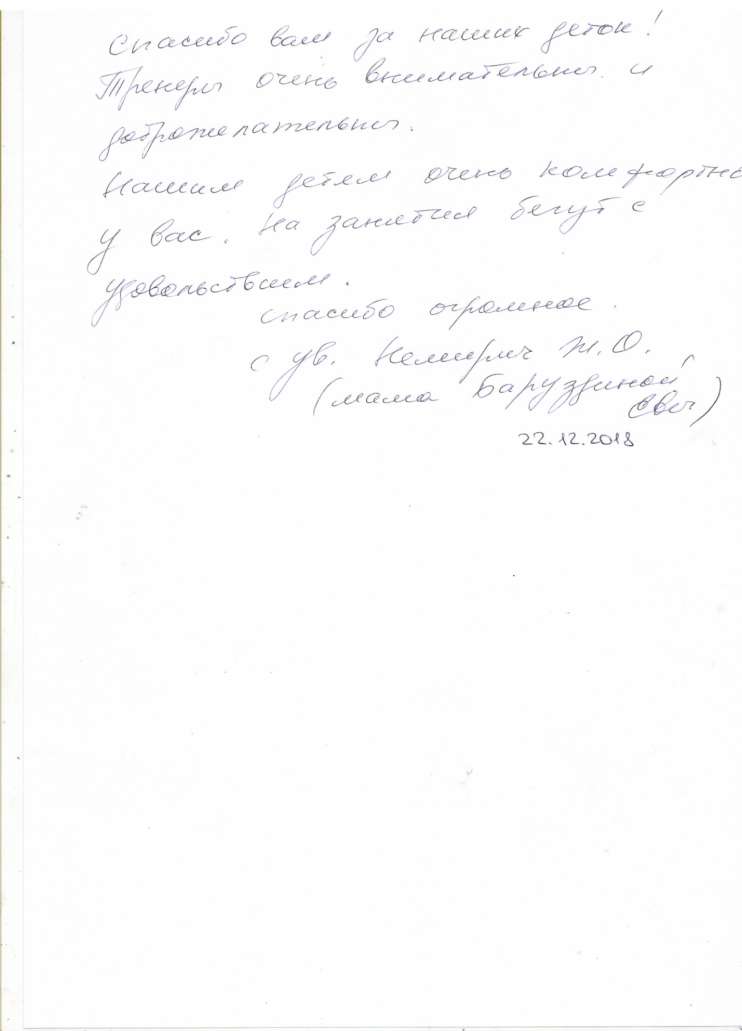 Спасибо вам за наших деток!
Тренеры очень внимательны и
доброжелательны.
Нашим детям очень комфортно
у вас. На занятия бегут с
удовольствием.
Спасибо огромное.
с ув. Немирич Ж.О.
(мама Баруздиной
Евы)
22.12.2018